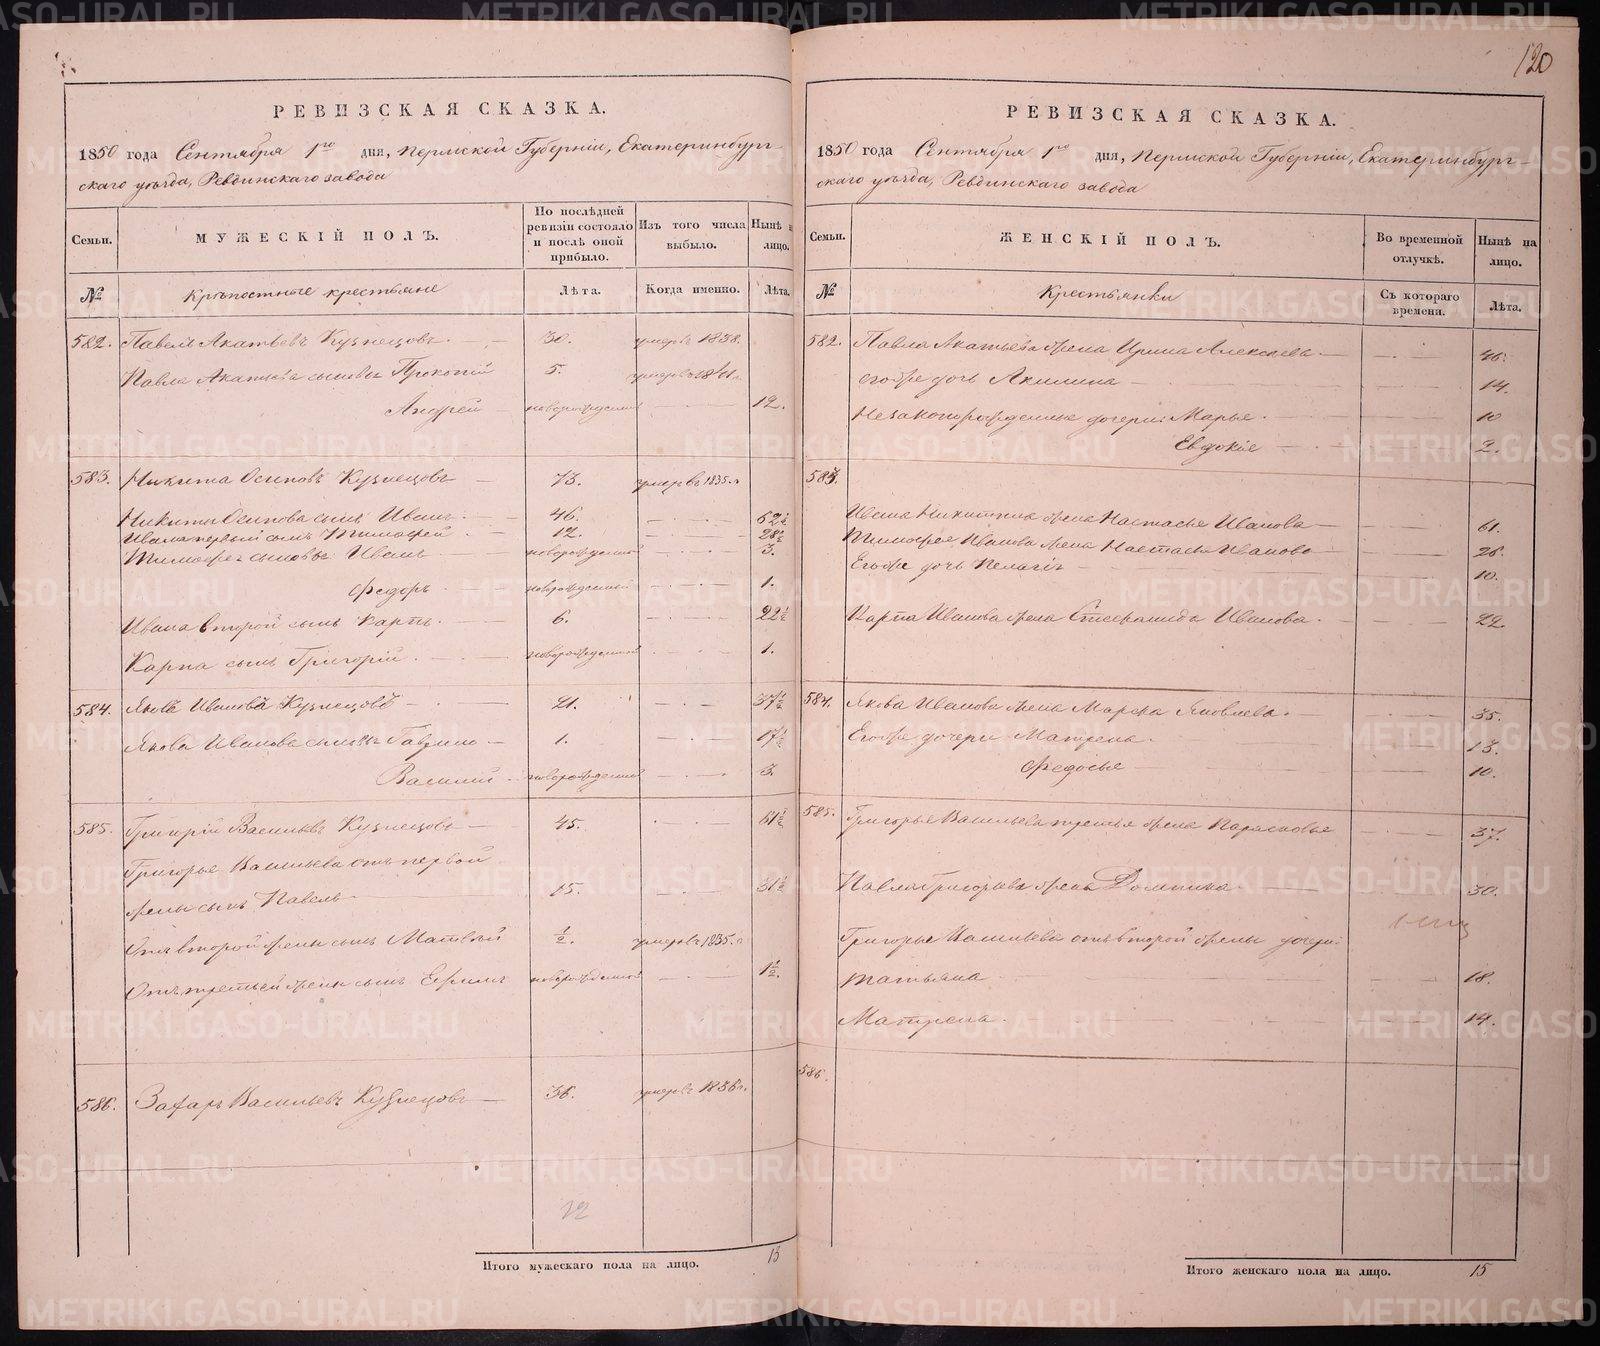 120
РЕВИЗСКАЯ СКАЗКА.
1850 года Сентября 1го дня, Пермской Губернiи, Екатеринбург-
скаго уѣзда, Ревдинскаго завода
Семьи.
МУЖЕСКIЙ ПОЛЪ.
По послѣдней ревизiи состояло и послѣ оной прибыло.
Изъ того числа выбыло.
Нынѣ лицо.
№
Крѣпостные крестьяне
Лѣта.
Когда именно.
Лѣта.
582. Павелъ Акатьевъ Кузнецовъ 30. умеръ 1838.
Павла Акатьева сыновья Прокопiй 5.
Андрей новорожденный 12.
583. Никита Осиповъ Кузнецовъ 73. умеръ 1835.г
Никиты Осипова сынъ Иванъ 46. 62½
Ивана первый сынъ Тимофей 12. 28½
Тимофея сыновья Иванъ новорожденный 3.
Федоръ новорожденный 1.
Ивана второй сынъ Карпъ 6. 22½
Карпа сынъ Григорiй новорожденный 1.
584. Яковъ Ивановъ Кузнецовъ 21. 37½
Якова Иванова сыновья Гаврило 1. 17½
Василiй новорожденный 3.
585. Григорiй Васильевъ Кузнецовъ 45. 61½
Григорья Васильева отъ первой
жены сынъ Павелъ 15. 31½
Отъ второй жены сынъ Матвей ½. умеръ 1835.г
Отъ третьей жены сынъ Ефимъ новорожденной 1½.
586. Захаръ Васильевъ Кузнецовъ 36. умеръ 1836г.
12
Итого мужескаго пола на лицо. 13
РЕВИЗСКАЯ СКАЗКА.
1850 года Сентября 1го дня, Пермской Губернiи, Екатеринбург-
скаго уѣзда, Ревдинскаго завода
Семьи.
ЖЕНСКIЙ ПОЛЪ.
Во временной отлучкѣ.
Нынѣ на лицо.
№
Крестьянки
Съ котораго времени.
Лѣта.
582. Павла Акатьева жена Ирина Алексеева 46.
его же дочь Акилина 14.
Незаконорожденные дочери: Марья 10
Евдокiя 2.
583.
Ивана Никитина жена Настасья Иванова 61.
Тимофея Иванова жена Настасья Иванова 26.
Его же дочь Пелагiя 10.
Карпа Иванова жена Степанида Иванова 22.
584. Якова Иванова жена Марфа Яковлева 35.
Его же дочери Матрена 13.
Федосья 10.
585. Григорья Васильева третья жена Парасковья 37.
Павла Григорьева жена Домника 30.
Григорья Васильева отъ второй жены дочери:
Татьяна 18.
Матрена 14.
586.
Итого женскаго пола на лицо. 15
METRIKI.GASO-URAL.RU